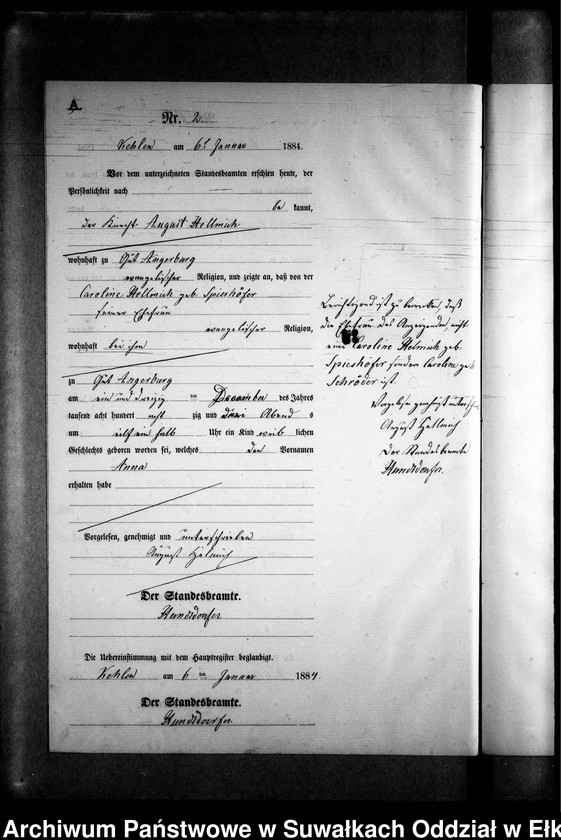 A.
Nr. 2.
Kehlen am 6t Januar 1884.
Vor dem unterzeichneten Standesbeamten erschien heute, der
Persönlichkeit nach
be kannt,
der Knecht August Hellmich
wohnhaft zu Gut Angerburg
evangelischer Religion, und zeigte an, daß von der
Caroline Hellmich geb. Spieshöfer
seiner Ehefrau
evangelischer Religion,
wohnhaft bei ihm
zu Gut Angerburg
am ein und dreizig ten December des Jahres
tausend acht hundert acht zig und drei Abend s
um eilf ein halb Uhr ein Kind weib lichen
Geschlechts geboren worden sei, welches den Vornamen
Anna
erhalten habe
Vorgelesen, genehmigt und unterschrieben
August Helmich
Der Standesbeamte.
Hundsdörfer
Die Uebereinstimmung mit dem Hauptregister beglaubigt.
Kehlen am 6 ten Januar 1884
Der Standesbeamte.
Hundsdoerfer.
Berichtigend ist zu bemerken, daß
die Ehefrau des Anzeigenden nicht
eine Caroline Helmich geb.
Spieshöfer sondern Caroline geb
Schröder ist.
Vorgelesen genehmigt unterschr.
August Hellmich
Der Standesbeamte
Hundsdörfer.
Archiwum Państwowe w Suwałkach Oddział w Ełk